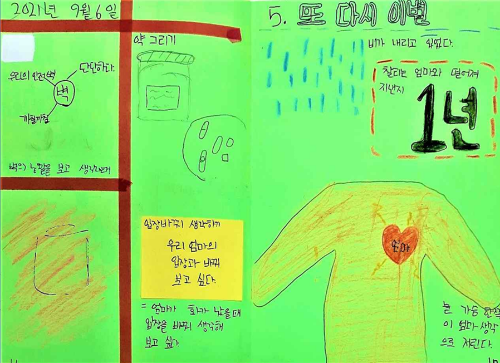 2021년 9월 6일
우리의 안전벽
단단하다.
벽
벽의 낱말을 보고 생각하기
약 그리기
입장바꿔 생각하기
우리 엄마의
입장과 바꿔
보고 싶다.
= 엄마가 화가 났을때
입장을 바꿔 생각해
보고 싶다
5. 또 다시 이별
비가 내리고 있었다.
찰리는 엄마와 떨어져
지낸지
1년
엄마
늘 가슴 한쪽
이 엄마 생각
으로 저린다.